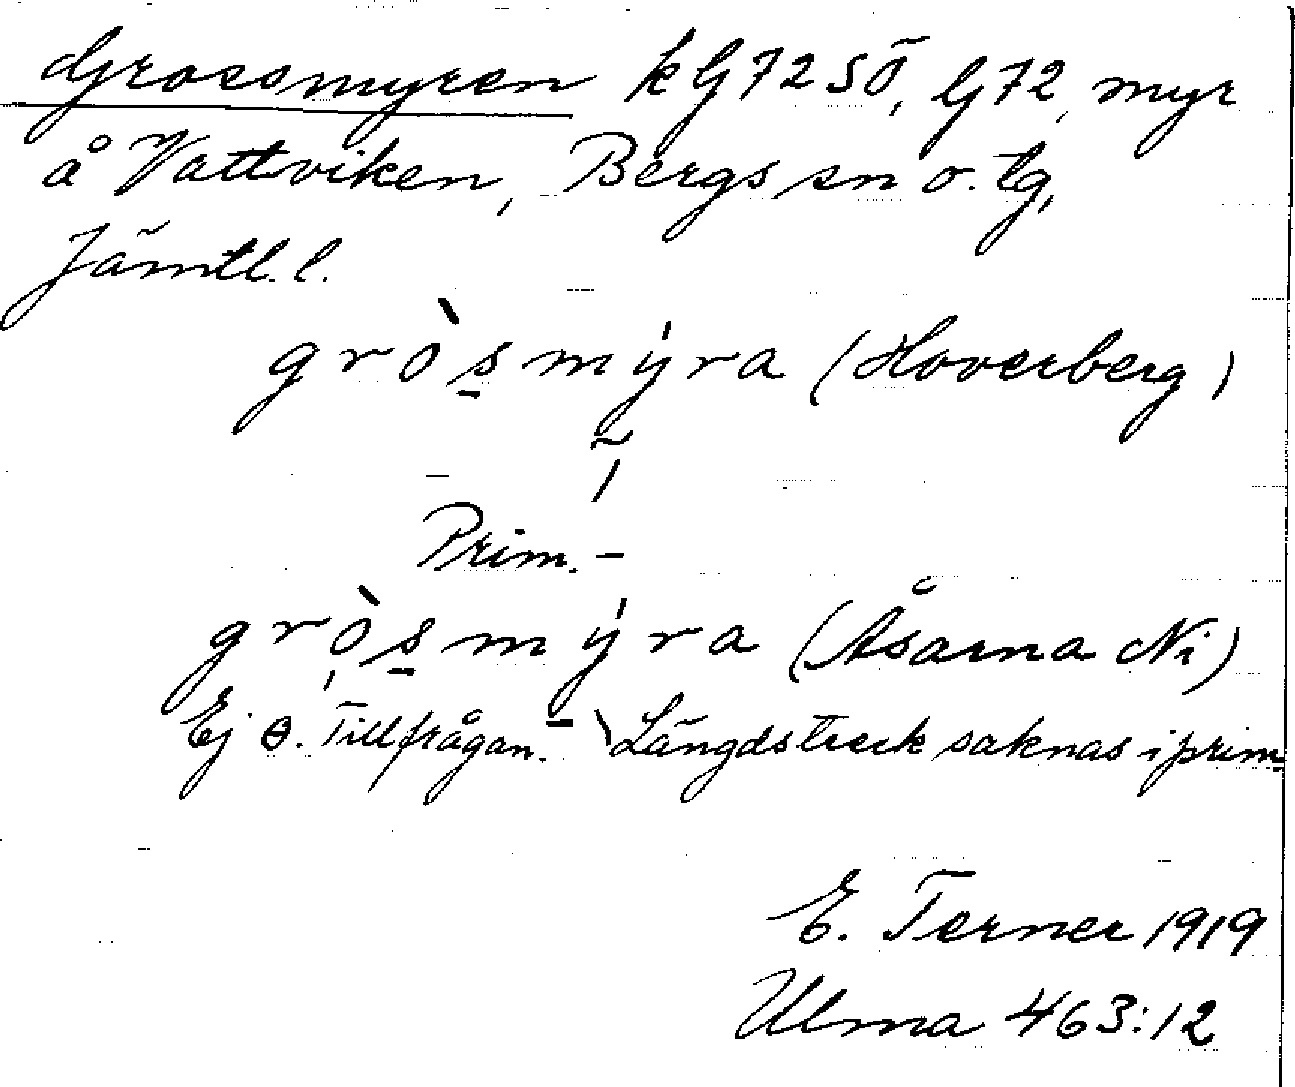 Grossmyren kG72SÖ, G72, myr
å Vattviken, Bergs sn o. tg,
Jämtl. l.
gròs̱mýra (Hoverberg)
Prim. –
grò̩s̱mýra (Åsarna Ni)
Ej ɵ. Tillfrågan. – Längdstreck saknas i prim.
E. Terner 1919
Ulma 463:12